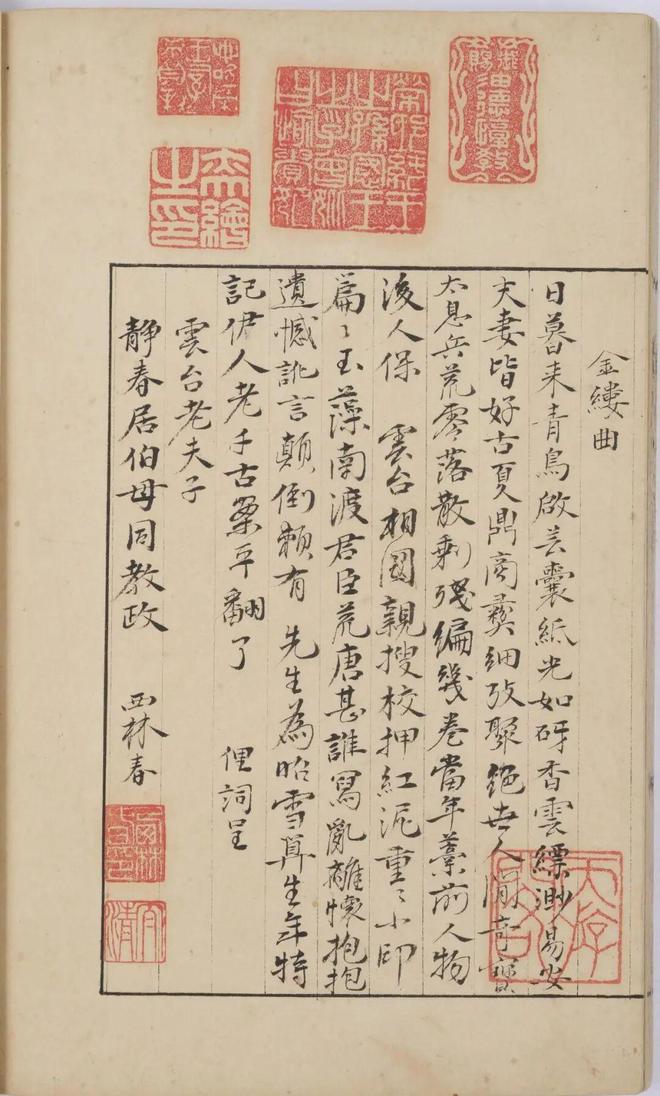 金縷曲
日暮来青鳥啟芸囊紙光如砑香雲縹渺易安
夫妻皆好古夏鼎商彝細攷聚絕世人間奇寶
太息兵荒零落散剩殘編幾卷當年藁前人物
後人保 雲台相國親搜校押紅泥重〻小印
篇〻玉藻南渡君臣荒唐甚誰寫亂離懷抱抱
遺憾訛言顛倒賴有 先生為昭雪算生年特
記伊人老千古案平翻了 俚詞呈
雲台老夫子
靜春居伯母同教政 西林春
奕繪之印